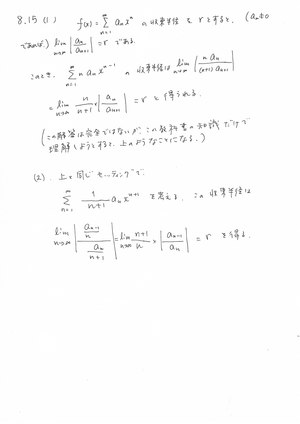 8.15 (1) f(x) = Σ_{n=1}^{∞} a_n x^n の収束半径を r とすると、(a_n ≠ 0
であれば) lim_{n→∞} |a_n / a_{n+1}| = r である.
このとき. Σ_{n=1}^{∞} n a_n x^{n-1} の収束半径は lim_{n→∞} |n a_n / (n+1) a_{n+1}|
= lim_{n→∞} n/(n+1) × |a_n / a_{n+1}| = r と得られる.
(この解答は完全ではないが、この教科書の知識だけで
理解しようとすると、上のようなことになる.)
(2). 上と同じセッティングで
Σ_{n=1}^{∞} 1/(n+1) a_n x^{n+1} を考える. この収束半径は
lim_{n→∞} |(a_{n-1}/n) / (a_n/(n+1))| = lim_{n→∞} (n+1)/n × |a_{n-1} / a_n| = r を得る.